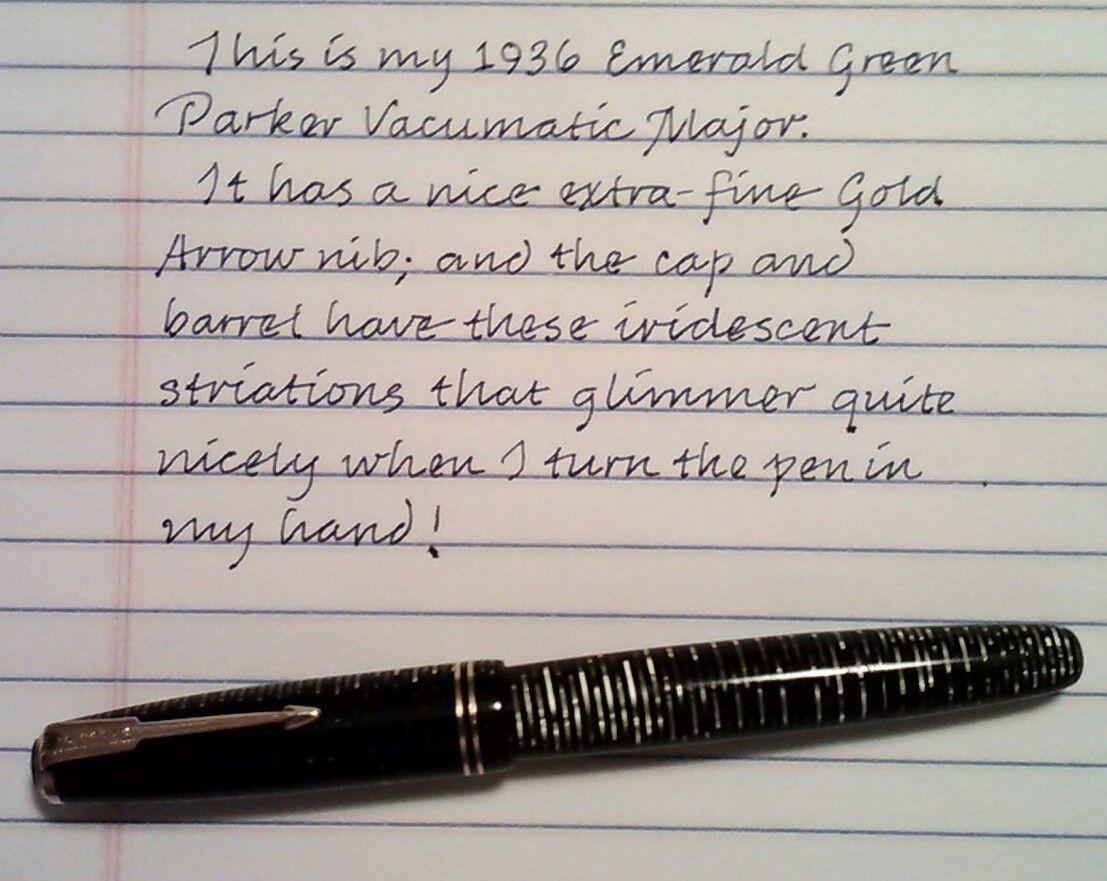 This is my 1936 Emerald Green
Parker Vacumatic Major.
It has a nice extra-fine Gold
Arrow nib; and the cap and
barrel have these iridescent
striations that glimmer quite
nicely when I turn the pen in
my hand!